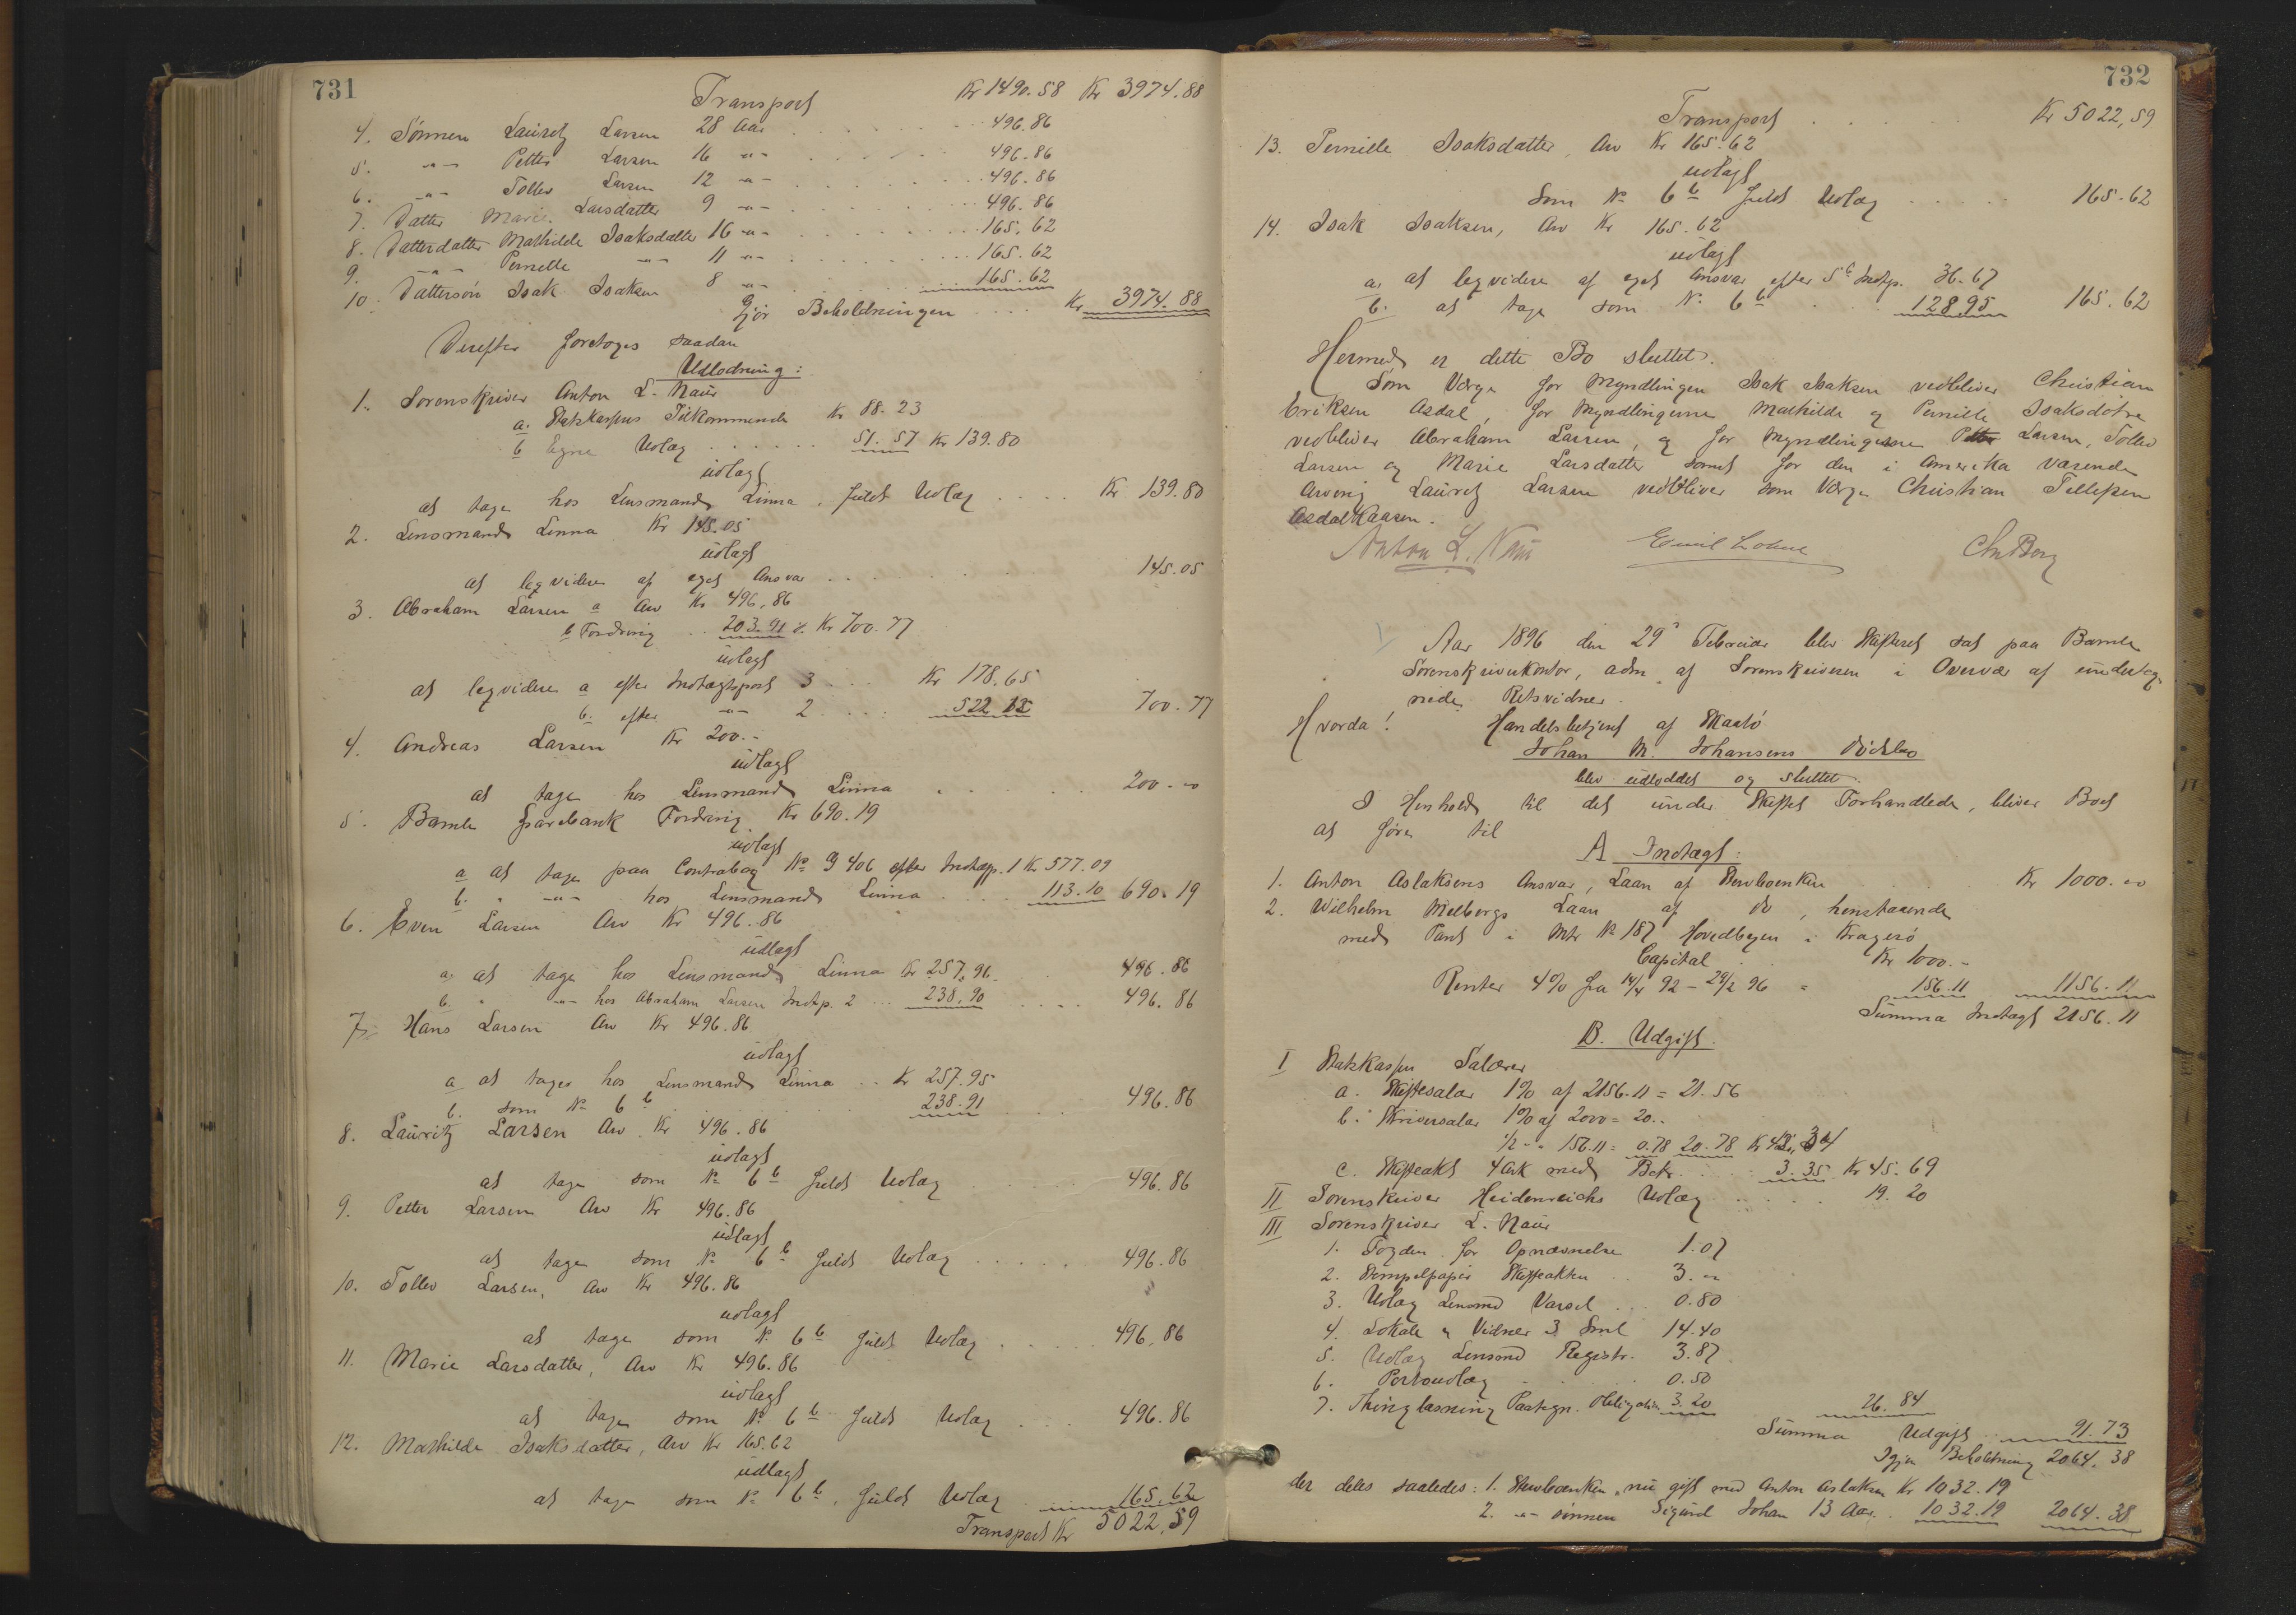 731
Transport Kr 1490.58 Kr 3974.88
4. Sønnen Lauritz Larsen 28 Aar . . . 496.86
5. -"- Petter Larsen 16 -"- . . . 496.86
6. -"- Tollev Larsen 12 -"- . . . 496.86
7. Datter Marie Larsdatter 9 -"- . . . 496.86
8. Datterdatter Mathilde Isaksdatter 16 -"- . . . 165.62
9. -"- Pernelle -"- 11 -"- . . . 165.62
10. Dattersøn Isak Isaksen 8 -"- . . . 165.62
Gjør Beholdningen . . . Kr 3974.88
Derefter foretoges saadan
Udlodning:
1. Sorenskriver Anton L. Naur
a. Statskassens Tilkommende Kr 88.23
b Egne Udlæg . . . 51.57 Kr 139.80
udlagt
at tage hos Lensmand Linna. fuldt Udlæg . . . Kr 139.80
2. Lensmand Linna Kr 145.05
udlagt
at leqvidere af eget Ansvar . . . 145.05
3. Abraham Larsen a Arv Kr 496.86
b Fordring . . 203.91 Kr 700.77
udlagt
at leqvidere a efter Indtægtspost 3 . . . Kr 178.65
b. efter -"- 2 . . . 522.12 700.77
4. Andreas Larsen Kr 200.-
udlagt
at tage hos Lensmand Linna . . . 200.-
5. Bamle Sparebank Fordring Kr 690.19
udlagt
a at tage paa Contrabog No 9406 efter Indtægtp. 1 Kr 577.09
b. " -"- hos Lensmand Linna . . . 113.10 690.19
6. Even Larsen Arv Kr 496.86
udlagt
a. at tage hos Lensmand Linna Kr 257.96 . . 496.86
b. " -"- hos Abraham Larsen Indtp. 2 . . . 238.90 . . . 496.86
7. Hans Larsen Arv Kr 496.86
udlagt
a at tages hos Lensmand Linna . . Kr 257.95
b. som No 6 b . . . 238.91 . . . 496.86
8. Lauritz Larsen Arv Kr 496.86
udlagt
at tage som No 6 b fuldt Udlæg . . . 496.86
9. Petter Larsen Arv Kr 496.86
udlagt
at tage som No 6 b fuldt Udlæg . . . 496.86
10. Tollev Larsen, Arv Kr 496.86
udlagt
at tage som No 6 b fuldt Udlæg . . . 496.86
11. Marie Larsdatter, Arv Kr 496.86
udlagt
at tage som No 6 b fuldt Udlæg . . . 496.86
12. Mathilde Isaksdatter, Arv Kr 165.62
udlagt
at tage som No 6 b, fuldt Udlæg . . . 165.62
Transport Kr 5022,59
732
Transport . . . Kr 5022,59
13. Pernille Isaksdatter, Arv Kr 165.62
udlagt
som No 6 b fuldt Udlæg . . . 165.62
14. Isak Isaksen, Arv Kr 165.62
udlagt
a. at leqvidere af eget Ansvar efter 5 Indtp. 36.67
b. at tage som No 6 b . . . 128.95 165.62
Hermed er dette Bo sluttet.
Som Værge for Myndlingen Isak Isaksen vedbliver Christian
Eriksen Asdal, for Myndlingerne Mathilde og Pernille Isaksdøtre
vedbliver Abraham Larsen, og for Myndlingerne Petter Larsen, Tollev
Larsen og Marie Larsdatter samt for den i Amerika værende
Arving Lauritz Larsen vedbliver som Værge Christian Tellefsen
Asdalkaasen.
Anton L. Naur Emil Lohne Chr Berg
Aar 1896 den 29de Februar blev Skifteret sat paa Bamle
Sorenskriverkontor, adm. af Sorenskriveren i Overvær af underteg-
nede Retsvidner.
Hvorda! Handelsbetjent af Skaatø
Johan M. Johansens Dødsbo
blev udloddet og sluttet.
I Henhold til det under Skiftet Forhandlede, bliver Boet
at føre til
A Indtægt:
1. Anton Aslaksens Ansvar, Laan af Stervboenken . . . Kr 1000.-
2. Wilhelm Melbergs Laan af do, henstaaende
med Pant i Mtr No 187 Hovedbyen i Kragerø
Capital . . . Kr 1000.-
Renter 4% fra 14/4 92 – 29/2 96 = 156.11 1156.11
Summa Indtægt 2156.11
B. Udgift.
I Statskassen Salærer
a. Skiftesalær 1% af 2156.11 = 21.56
b. Skriversalær 1% af 2000 = 20..
1/2 - " 156.11 = 0.78 20.78 Kr 42.34
c. Skifteakt 4 Ark med Bekr. . . . 3.35 Kr 45.69
II Sorenskriver Heidenreichs Udlæg . . . 19.20
III Sorenskriver L. Naur
1. Fogden for Opnævnelse 1.07
2. Stempelpapir Skifteakten . . 3.-
3. Udlæg Lensmd Varsel . . . 0.80
4. Lokale & Vidner 3 Sml 14.40
5. Udlæg Lensmd Registr. 3.87
6. Portoudlæg . . . 0.50
7. Thinglæsning Paategn. Obligation 3.20 26.84
Summa Udgift . . 91.73
Igjen Beholdning 2064.38
der deles saaledes: 1. Stervboenken, nu gift med Anton Aslaksen Kr 1032.19
2. -"- sønnen Sigurd Johan 13 Aar . . 1032.19 2064.38